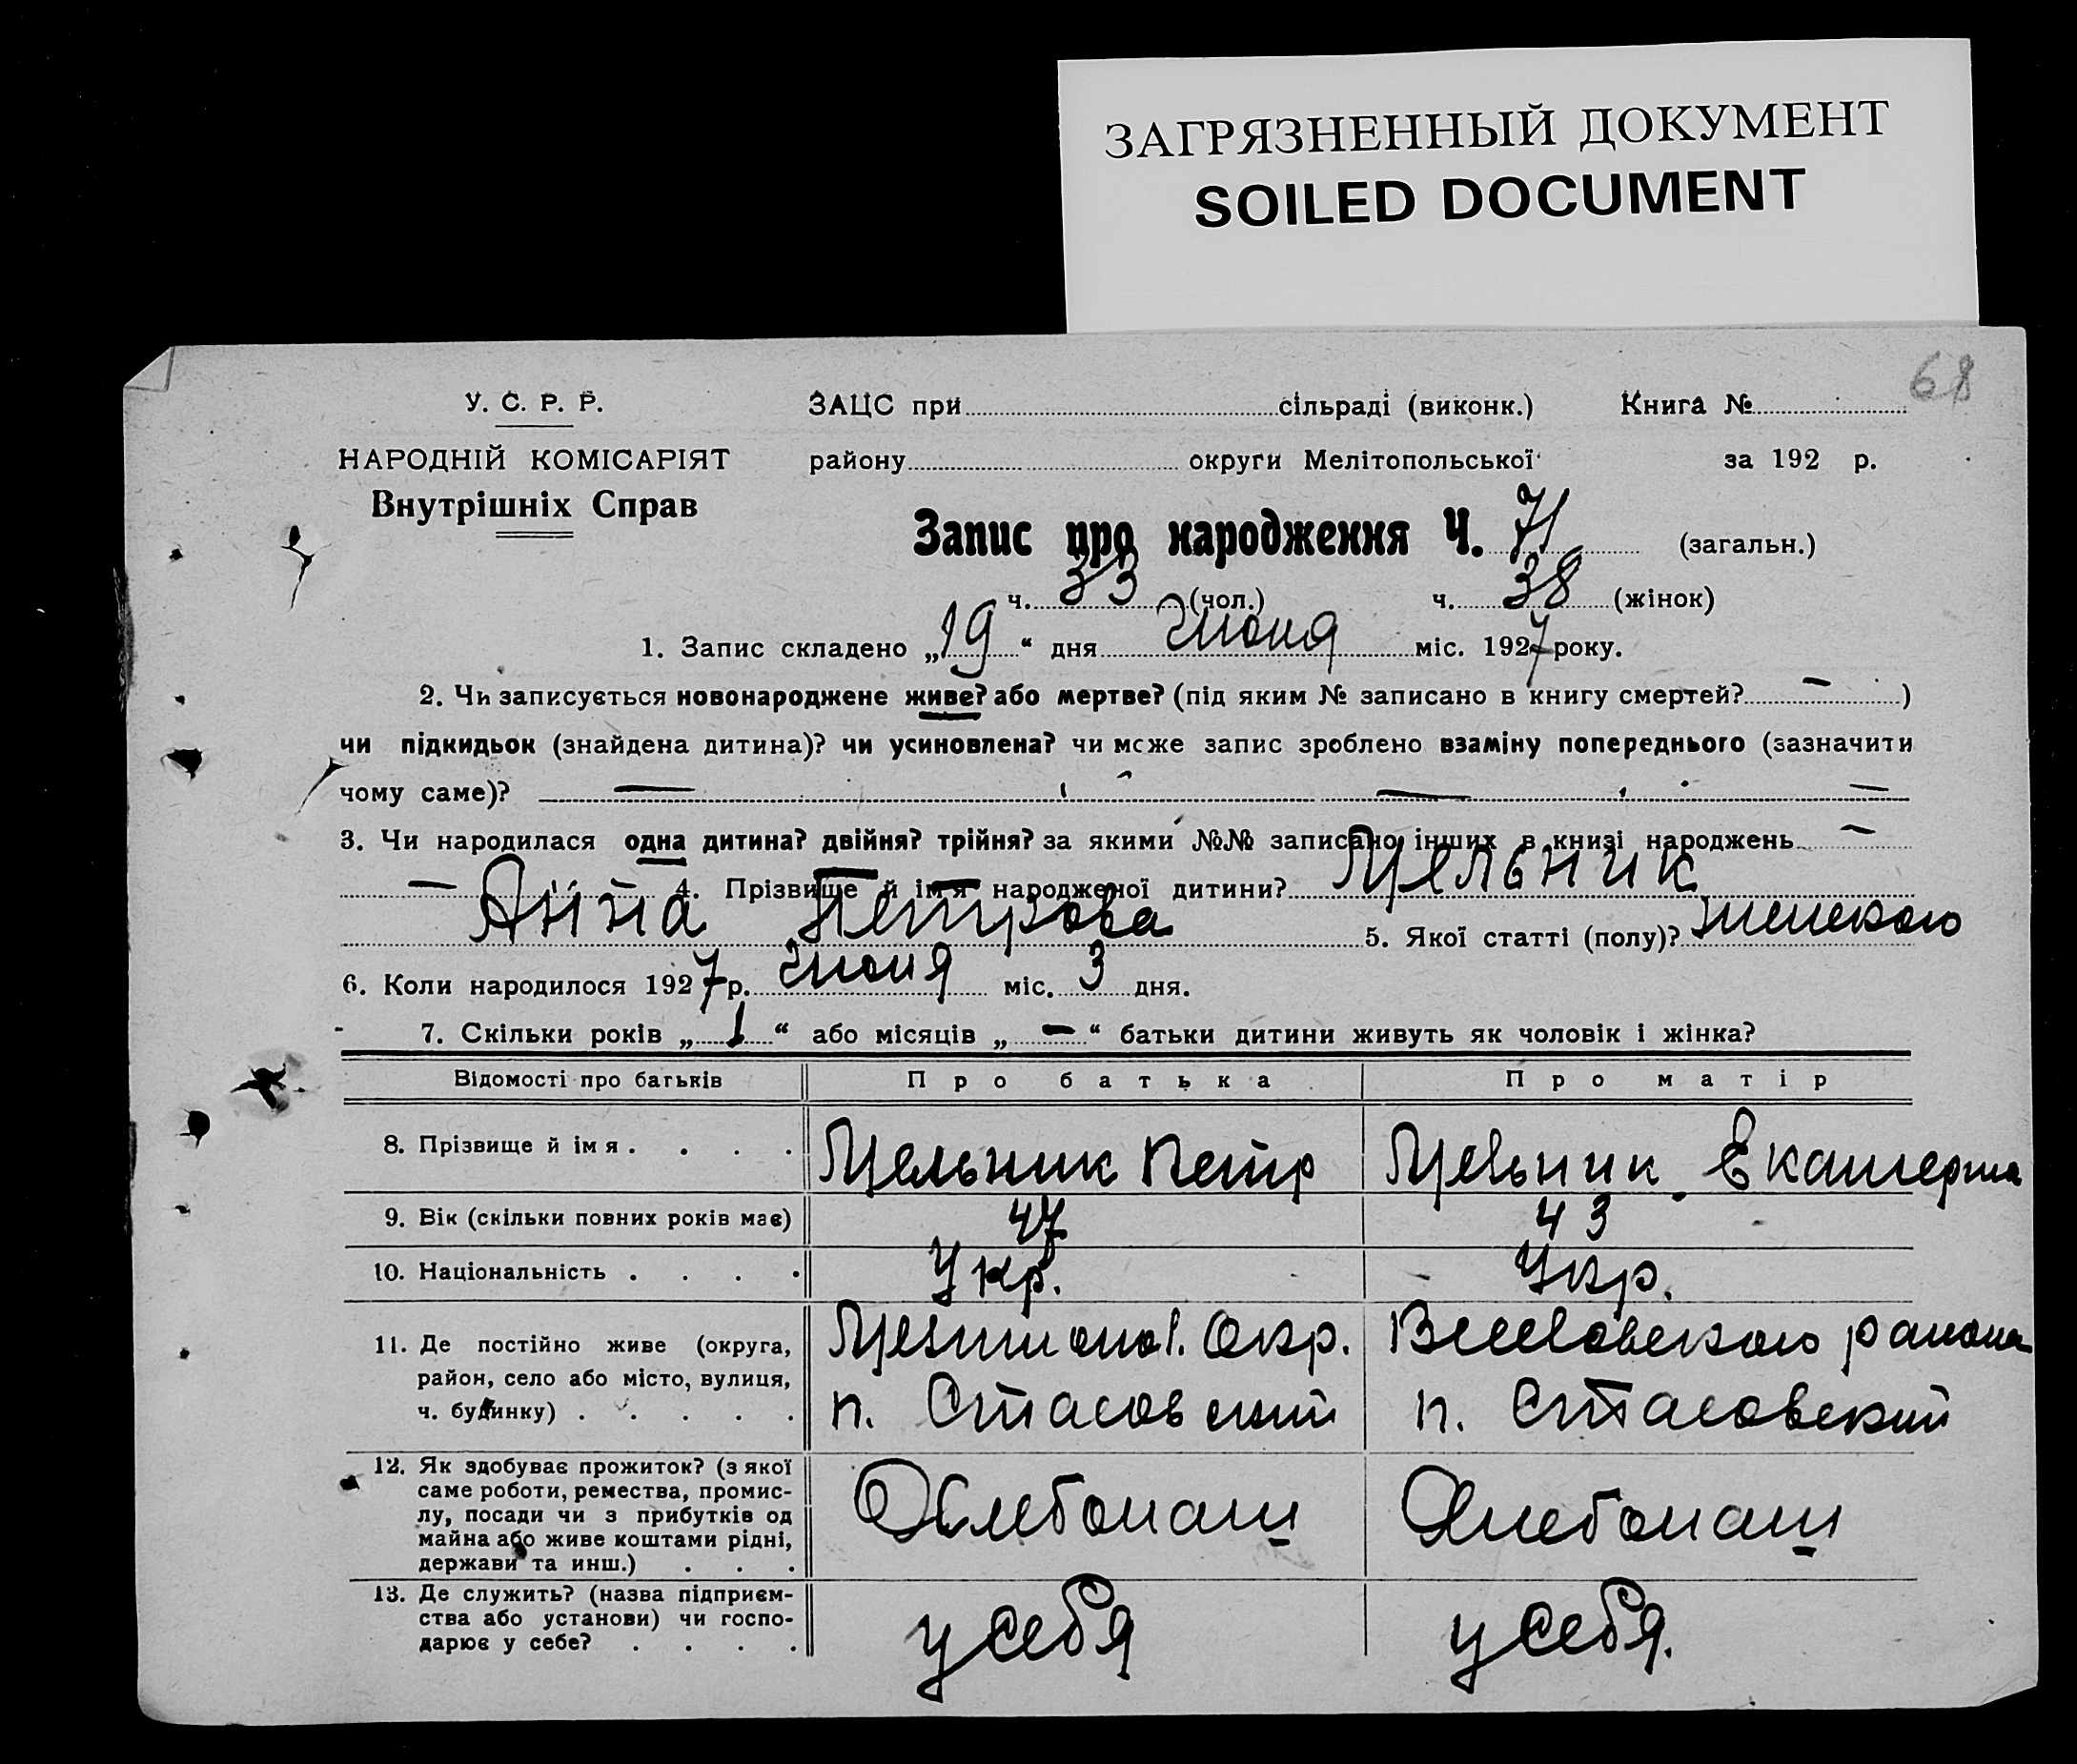 ЗАГРЯЗНЕННЫЙ ДОКУМЕНТ
SOILED DOCUMENT
68
У. С. Р. Р. ЗАЦС при сільраді (виконк.) Книга №
НАРОДНІЙ КОМІСАРІЯТ району округи Мелітопольської за 192 р.
Внутрішніх Справ
Запис про народження Ч. 71 (загальн.)
ч. 33 (чол.) ч. 38 (жінок)
1. Запис складено „19“ дня Июня міс. 1927 року.
2. Чи записується новонароджене живе? або мертве? (під яким № записано в книгу смертей? — )
чи підкидьок (знайдена дитина)? чи усиновлена? чи може запис зроблено взаміну попереднього (зазначити
чому саме)? — — —
3. Чи народилася одна дитина? двійня? трійня? за якими №№ записано інших в книзі народжень —
— 4. Прізвище й ім'я народженої дитини? Мельник
Анна Петрова 5. Якої статті (полу)? женского
6. Коли народилося 1927 р. Июня міс. 3 дня.
7. Скільки років „1“ або місяців „—“ батьки дитини живуть як чоловік і жінка?
Відомості про батьків Про батька Про матір
8. Прізвище й ім я . . . . Мельник Петр Мельник Екатерина
9. Вік (скільки повних років має) 47 43
10. Національність . . . . Укр. Укр.
11. Де постійно живе (округа, Мелитопол. Окр. Веселовского района
район, село або місто, вулиця,
ч. будинку) . . . . . п. Стасовский п. Стасовский
12. Як здобуває прожиток? (з якої
саме роботи, ремества, промис-
лу, посади чи з прибутків од Хлебопаш Хлебопаш
майна або живе коштами рідні,
держави та инш.) . . .
13. Де служить? (назва підприєм-
ства або установи) чи госпо- у себя у себя.
дарює у себе? . . . .